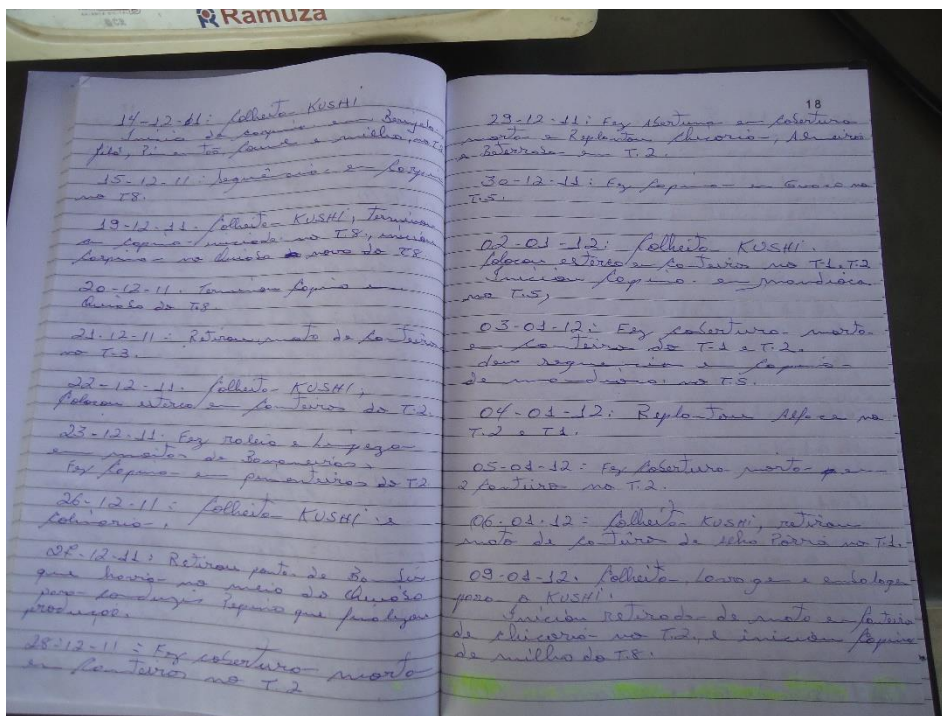 Ramuza
14-12-11: Colheita KUSHI
Início de capina em
milho, no T.8
15-12-11: em
no T8.
19-12-11. Colheita KUSHI, Terminou
a capina no T8, iniciou
capina no novo do T8
20-12-11. Terminou Capina em
do T8
21-12-11: Retirou mato de Canteiros
no T-3.
22-12-11. Colheita KUSHI,
Colocou esterco em Canteiros do T.2.
23-12-11. Fez roleio e Limpeza
em moitas de Bananeiras.
Fez Capina em do T2
26-12-11: Colheita KUSHI e
27-12-11: Retirou de
que havia no meio do
para conduzir Pepino que finalizou
produção.
28-12-11: Fez cobertura morta
em Canteiros no T.2
18
29-12-11: Fez Abertura em Cobertura
morta e Replantou chicoria, Almeirão
e Beterraba em T.2.
30-12-11: Fez Capina em no
T.5.
02-01-12: Colheita KUSHI.
Colocou esterco em Canteiros no T-1, T.2
Iniciou Capina em mandioca
no T.5,
03-01-12: Fez cobertura morta
em Canteiros do T-1 e T-2.
deu sequencia em Capina
de mandioca no T.5.
04-01-12: Replantou Alface no
T.2 e T1.
05-01-12: Fez Cobertura morta em
2 Canteiros no T.2.
06.01.12: Colheita KUSHI, retirou
mato de Canteiro de Alho Porró no T.1.
09-01-12. Colheita, Lavagem e embalagem
para a KUSHI.
Iniciou Retirada de mato em Canteiro
de chicoria no T.2, e iniciou Capina
de milho do T.8.